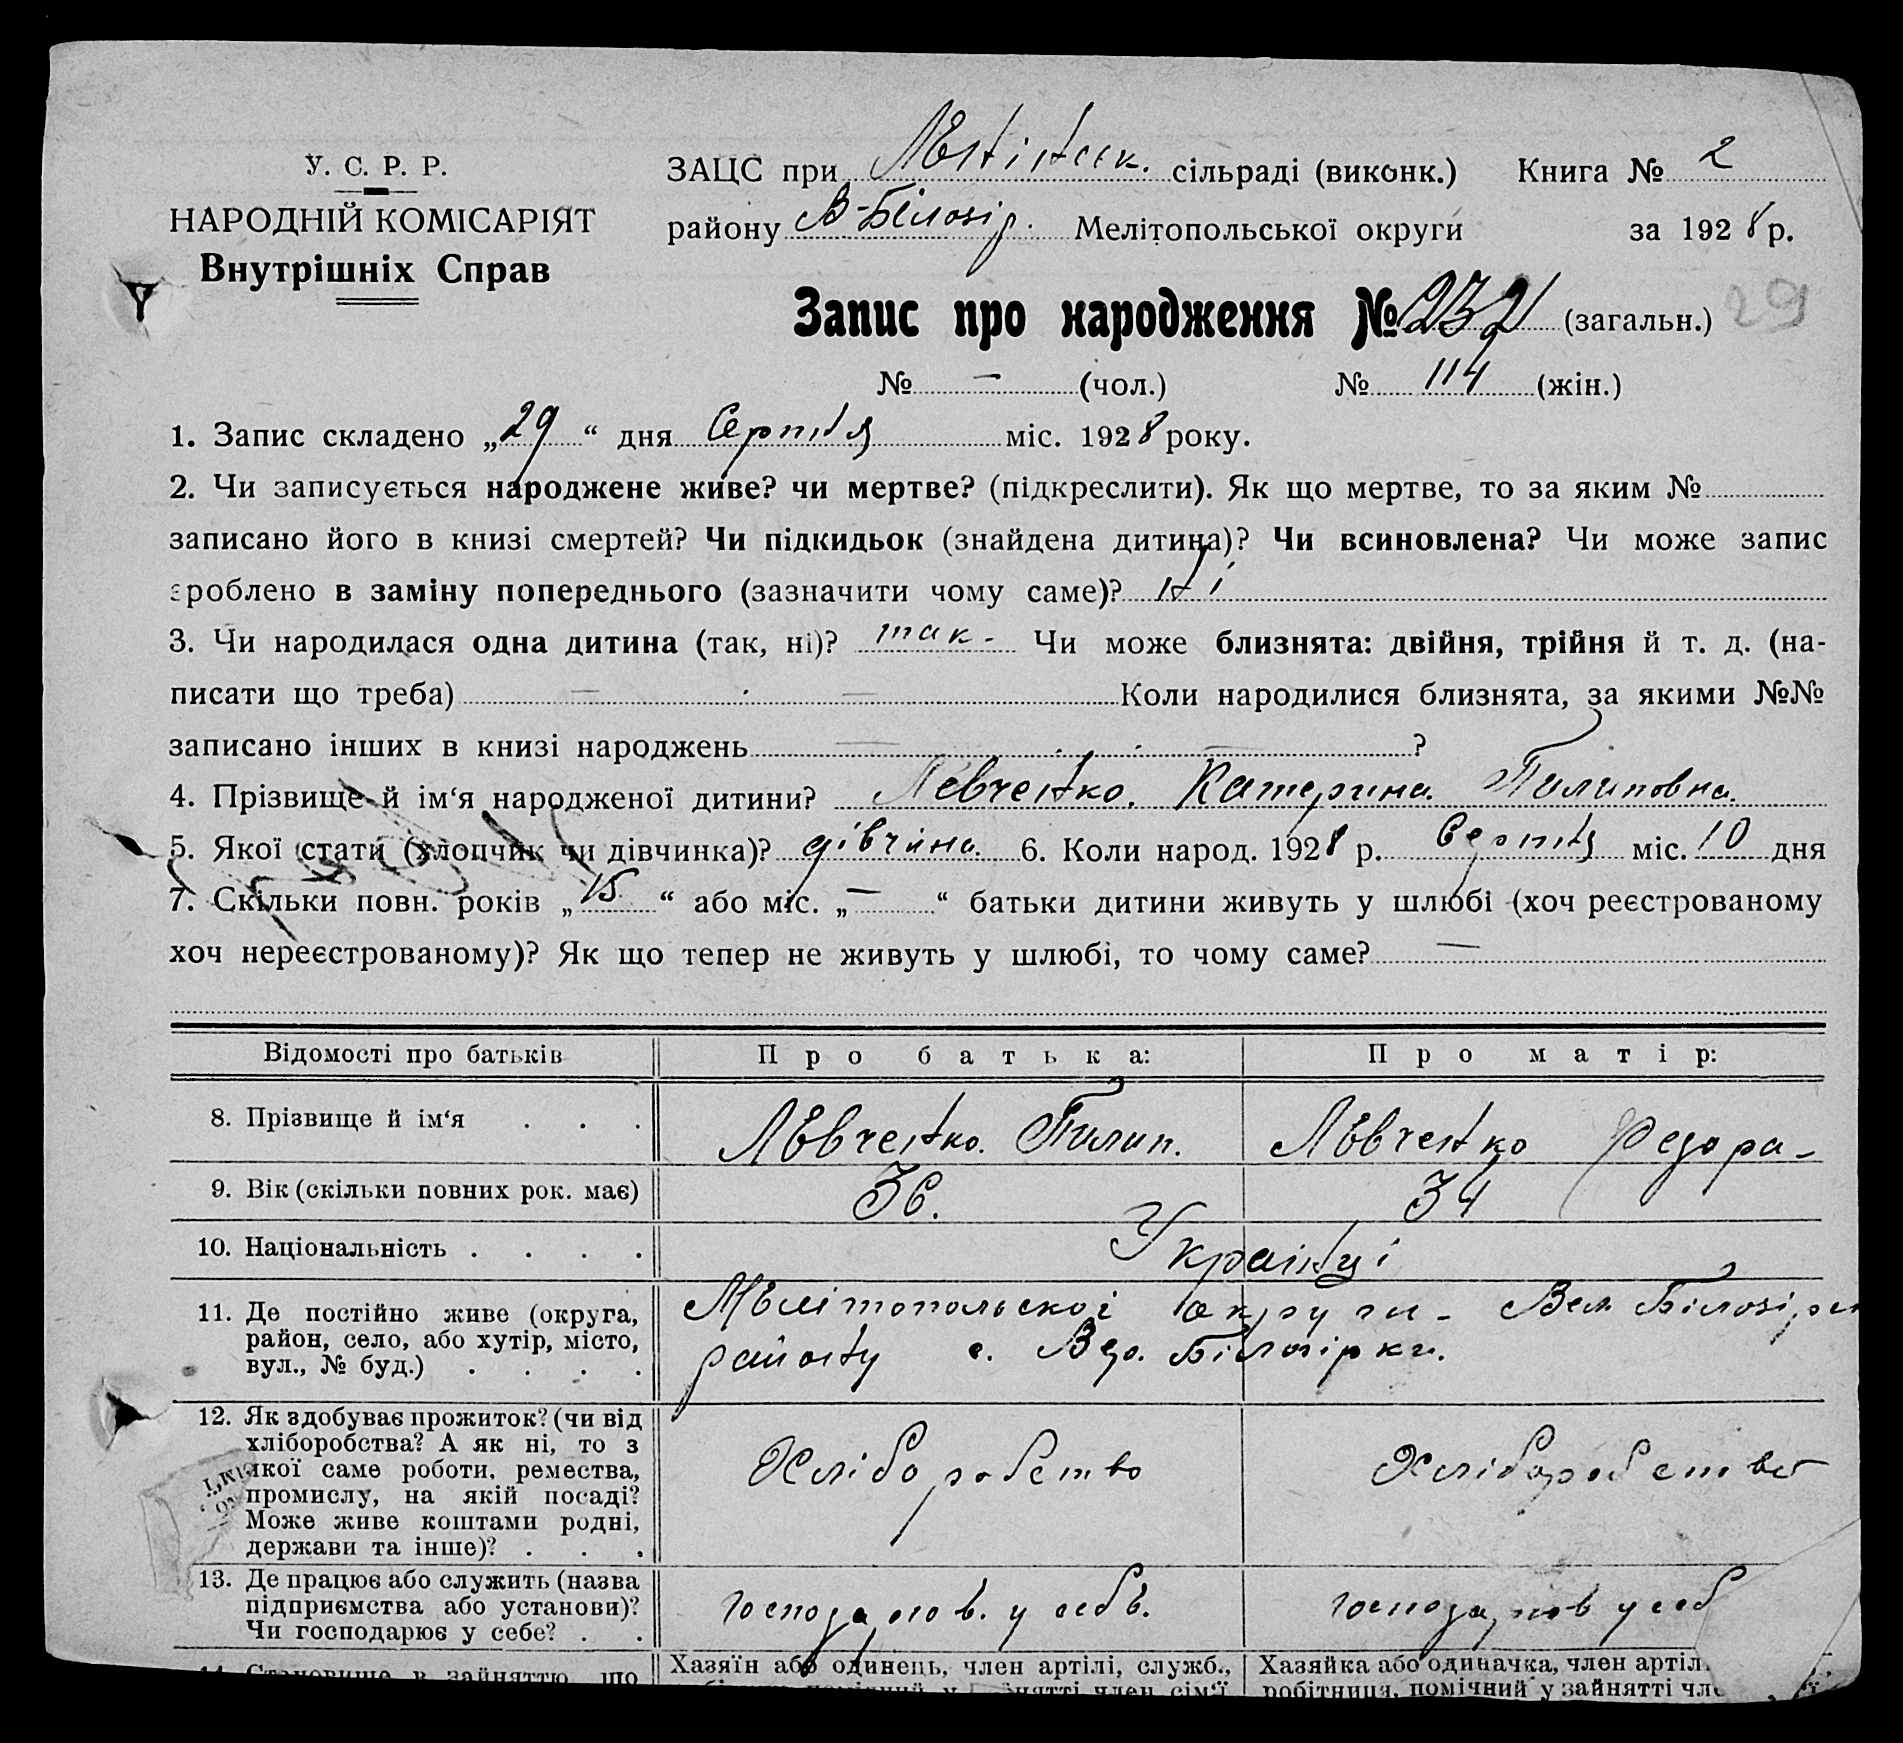 У. С. Р. Р.
НАРОДНІЙ КОМІСАРІЯТ
Внутрішніх Справ
ЗАЦС при сільраді (виконк.) Книга № 2
району В-Білозір. Мелітопольської округи за 1928 р.
Запис про народження № 232 (загальн.) 29
№ — (чол.) № 114 (жін.)
1. Запис складено „29“ дня Серпня міс. 1928 року.
2. Чи записується народжене живе? чи мертве? (підкреслити). Як що мертве, то за яким №
записано його в книзі смертей? Чи підкидьок (знайдена дитина)? Чи всиновлена? Чи може запис
зроблено в заміну попереднього (зазначити чому саме)? Ні
3. Чи народилася одна дитина (так, ні)? так - Чи може близнята: двійня, трійня й т. д. (на-
писати що треба) — — Коли народилися близнята, за якими №№
записано інших в книзі народжень — — ?
4. Прізвище й ім‘я народженої дитини? Левченко. Катерина. Пилиповна.
5. Якої стати (хлопчик чи дівчинка)? дівчина. 6. Коли народ. 1928 р. Серпня міс. 10 дня
7. Скільки повн. років „15“ або міс. „—“ батьки дитини живуть у шлюбі (хоч реєстрованому
хоч нереєстрованому)? Як що тепер не живуть у шлюбі, то чому саме? —
Відомості про батьків Про батька: Про матір:
8. Прізвище й ім‘я . . . Левченко. Пилип. Левченко Федора-
9. Вік (скільки повних рок. має) 36. 34
10. Національність . . . . Українці
11. Де постійно живе (округа, Мелітопольскої округи - Вел Білозірк
район, село, або хутір, місто, району с. Білозірки.
вул., № буд.) . . . .
12. Як здобуває прожиток? (чи від
хліборобства? А як ні, то з
якої саме роботи, ремества, Хліборобство Хліборобство
промислу, на якій посаді?
Може живе коштами родні,
держави та інше)? . . .
13. Де працює або служить (назва
підприємства або установи)? Господарюв. у себе. господарюв у себ
Чи господарює у себе? . .
14. Становище в зайняттю, що Хазяїн або одинець, член артілі, служб., Хазяйка або одиначка, член артіл
робітниця, помічний у зайнятті